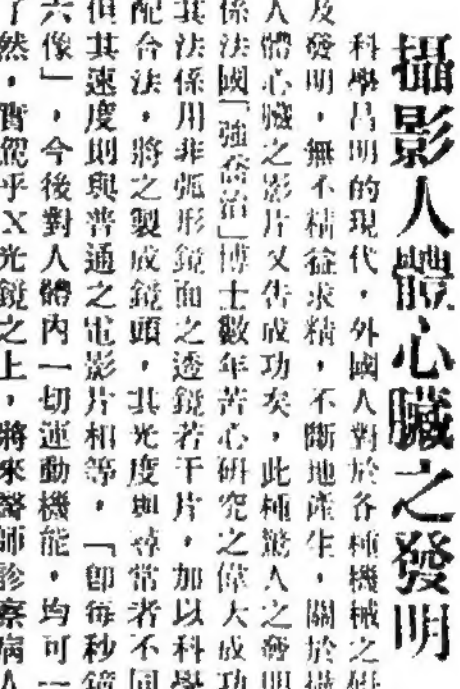 攝影人體心臟之發明
科學昌明的現代，外國人對於各種機械之研
及發明，無不精益求精，不斷地產生，關於攝
人體心臟之影片又告成功矣，此種驚人之發明
係法國「強喬治」博士數年苦心研究之偉大成功
其法係用非弧形鏡面之透鏡若干片，加以科學
配合法，將之製成鏡頭，其光度與尋常者不同
但其速度則與普通之電影片相等，「卽每秒鏡
六像」，今後對人體內一切運動機能，均可一
了然，實駕乎X光鏡之上，將來醫師診察病人